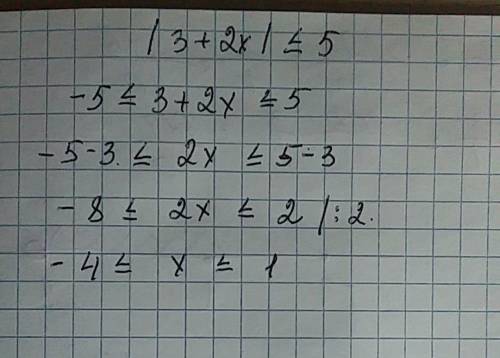 | 3 + 2x | ≤ 5
-5 ≤ 3 + 2x ≤ 5
-5-3 ≤ 2x ≤ 5-3
-8 ≤ 2x ≤ 2 | : 2.
-4 ≤ x ≤ 1